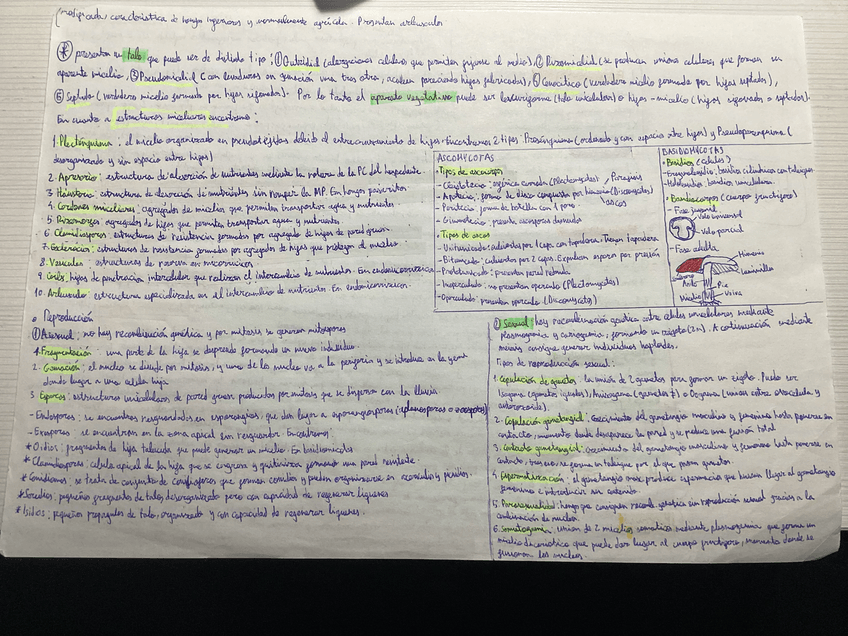 característica de hongos ingeniosos y normalmente agrícola. Presentan arbusculos
* presentan un talo que puede ser de distinto tipo: ① (alargaciones celulares que permiten fijarse al medio), ② Rizomicelial (se producen uniones celulares que forman un
aparente micelio, ③ Pseudomicelial (con levaduras en gemación una tras otra, acaban pareciendo hifas fabricadas), ④ Cenocítico (verdadero micelio formado por hifas septadas),
⑤ Septado (verdadero micelio formado por hifas sifonadas). Por lo tanto el aparato vegetativo puede ser levuriforme (talo unicelular) o hifas-micelio (hifas sifonadas o septadas).
En cuanto a estructuras miceliares encontramos:
1. Plecténquima: el micelio organizado en pseudotejidos debido al entrecruzamiento de hifas. Encontramos 2 tipos: Prosénquima (ordenado y con espacio entre hifas) y Pseudoparénquima (
desorganizado y sin espacio entre hifas)
2. Apresorio: estructuras de absorción de nutrientes mediante la rotura de la PC del hospedante.
3. Haustorio: estructura de absorción de nutrientes sin romper la MP. En hongos parásitos
4. Cordones miceliares: agregados de micelio que permiten transportar agua y nutrientes.
5. Rizomorfos: agregados de hifas que permiten transportar agua y nutrientes
6. Clamidosporas: estructuras de resistencia formadas por agregado de hifas de pared gruesa
7. Esclerocios: estructuras de resistencia formadas por agregados de hifas que protegen al micelio.
8. Vesículas: estructuras de reserva en micorrizas
9. hifas de penetración intercelular que realizan el intercambio de nutrientes. En endomicorrizas
10. Arbúsculos: estructura especializada en el intercambio de nutrientes. En endomicorrizas.
ASCOMYCOTAS
• Tipos de ascocarpos
- Cleistotecio: esférica cerrada (Plectomycetes)
- Apotecio: forma de disco (Discomycetes)
- Peritecio: forma de botella con 1 poro
- Gimnotecio: presenta ascosporas desnudas
• Tipos de ascos
- Unitunicado: cubiertos por 1 capa con tapadera.
- Bitunicado: cubiertos por 2 capas. Expulsan esporas por presión
- Prototunicado: presentan pared redonda
- Inoperculado: no presentan opérculo (Plectomycetes)
- Operculado: presentan opérculo (Discomycetes)
BASIDIOMYCOTAS
• Basidios (células)
• Basidiocarpos (cuerpo fructífero)
- Fase juvenil
Velo universal
Velo parcial
- Fase adulta
Himenio
Laminillas
Anillo
Pie
Micelio
Volva
• Reproducción
① Asexual: no hay recombinación genética y por mitosis se generan mitosporas
1. Fragmentación: una parte de la hifa se desprende formando un nuevo individuo
2. Gemación: el núcleo se divide por mitosis, y uno de los núcleos va a la periferia y se introduce en la yema
dando lugar a una célula hija
3. Esporas: estructuras unicelulares de pared gruesa producidas por mitosis que se dispersan con la lluvia
- Endosporas: se encuentran resguardadas en esporangios, que dan lugar a esporangiosporas (aplanosporas o zoosporas)
- Exosporas: se encuentran en la zona apical sin resguardar. Encontramos:
* Oidios: fragmentos de hifa tabicada que puede generar un micelio. En basidiomicetos
* Clamidosporas: célula apical de la hifa que se engrosa y quitiniza formando una pared resistente.
* Conidiosporas: se trata de conjunto de conidiosporas que forman conidios y pueden organizarse en acérvulos y picnidios.
* Soredios: pequeños fragmentos de talo, desorganizado pero con capacidad de regenerar líquenes
* Isidios: pequeños propágulos de talo, organizado y con capacidad de regenerar líquenes.
② Sexual: hay recombinación genética entre células unicelulares mediante
plasmogamia y cariogamia, formando un zigoto (2n). A continuación mediante
meiosis consigue generar individuos haploides.
Tipos de reproducción sexual:
1. Copulación de gametos: la unión de 2 gametos para formar un zigoto. Puede ser
Isogama (gametos iguales), Anisogama (gametos ≠) o Oogama (unión entre oosfera y
anterozoide).
2. Copulación gametangial: Crecimiento del gametangio masculino y femenino hasta ponerse en
contacto, momento donde desaparece la pared y se produce una fusión total
3. Contacto gametangial: crecimiento del gametangio masculino y femenino hasta ponerse en
contacto, tras eso se forma un tabique por el que pasan gametos.
4. Espermatización: el gametangio masc produce espermacios que hacen llegar al gametangio
femenino e introducir su contenido.
5. Parasexualidad: hongos que consiguen recomb. genética sin reproducción sexual gracias a la
combinación de núcleos.
6. Somatogamia: unión de 2 micelios somáticos mediante plasmogamia que forman un
micelio dicariótico que puede dar lugar al cuerpo fructífero, momento donde se
fusionan los núcleos.